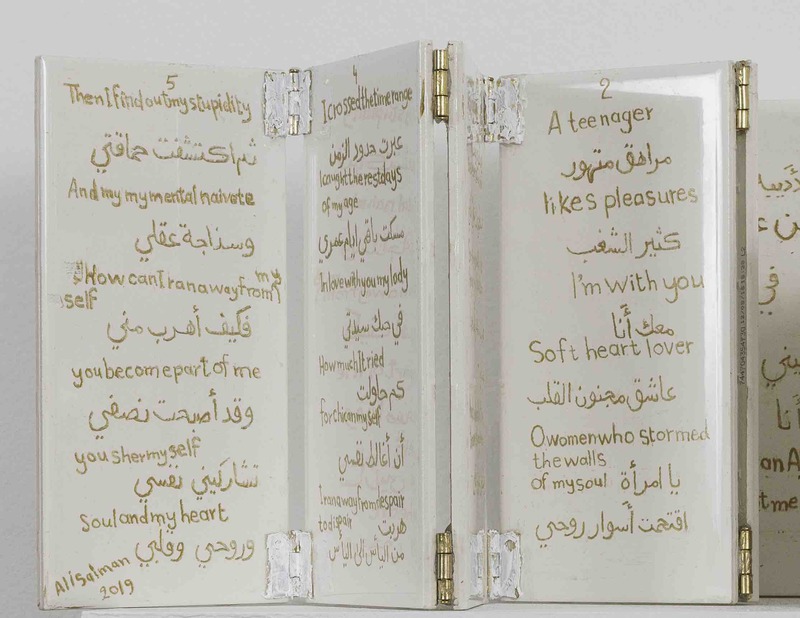 5
Then I find out my stupidity
ثم اكتشفت حماقتي
And my my mental naivete
وسذاجة عقلي
How can I ran away from my
self
فكيف أهرب مني
you become part of me
وقد أصبحت نصفي
you sher my self
تشاركيني نفسي
Soul and my heart
وروحي وقلبي
Ali Salman
2019
4
I crossed the time range
عبرت حدود الزمن
I caught the rest days
of my age
مسكت باقي ايام عمري
In love with you my lody
في حبك سيدتي
How much I tried
كم حاولت
for chicon myself
أن أغالط نفسي
I ran away from despair
to dispair
هربت
من اليأس الى اليأس
2
A teenager
مراهق متهور
likes pleasures
كثير الشغب
I'm with you
معك أنا
Soft heart lover
عاشق مجنون القلب
O women who stormed
the walls
of my soul يا امرأة
اقتحمت أسوار روحي
في
أنا
an A
t me